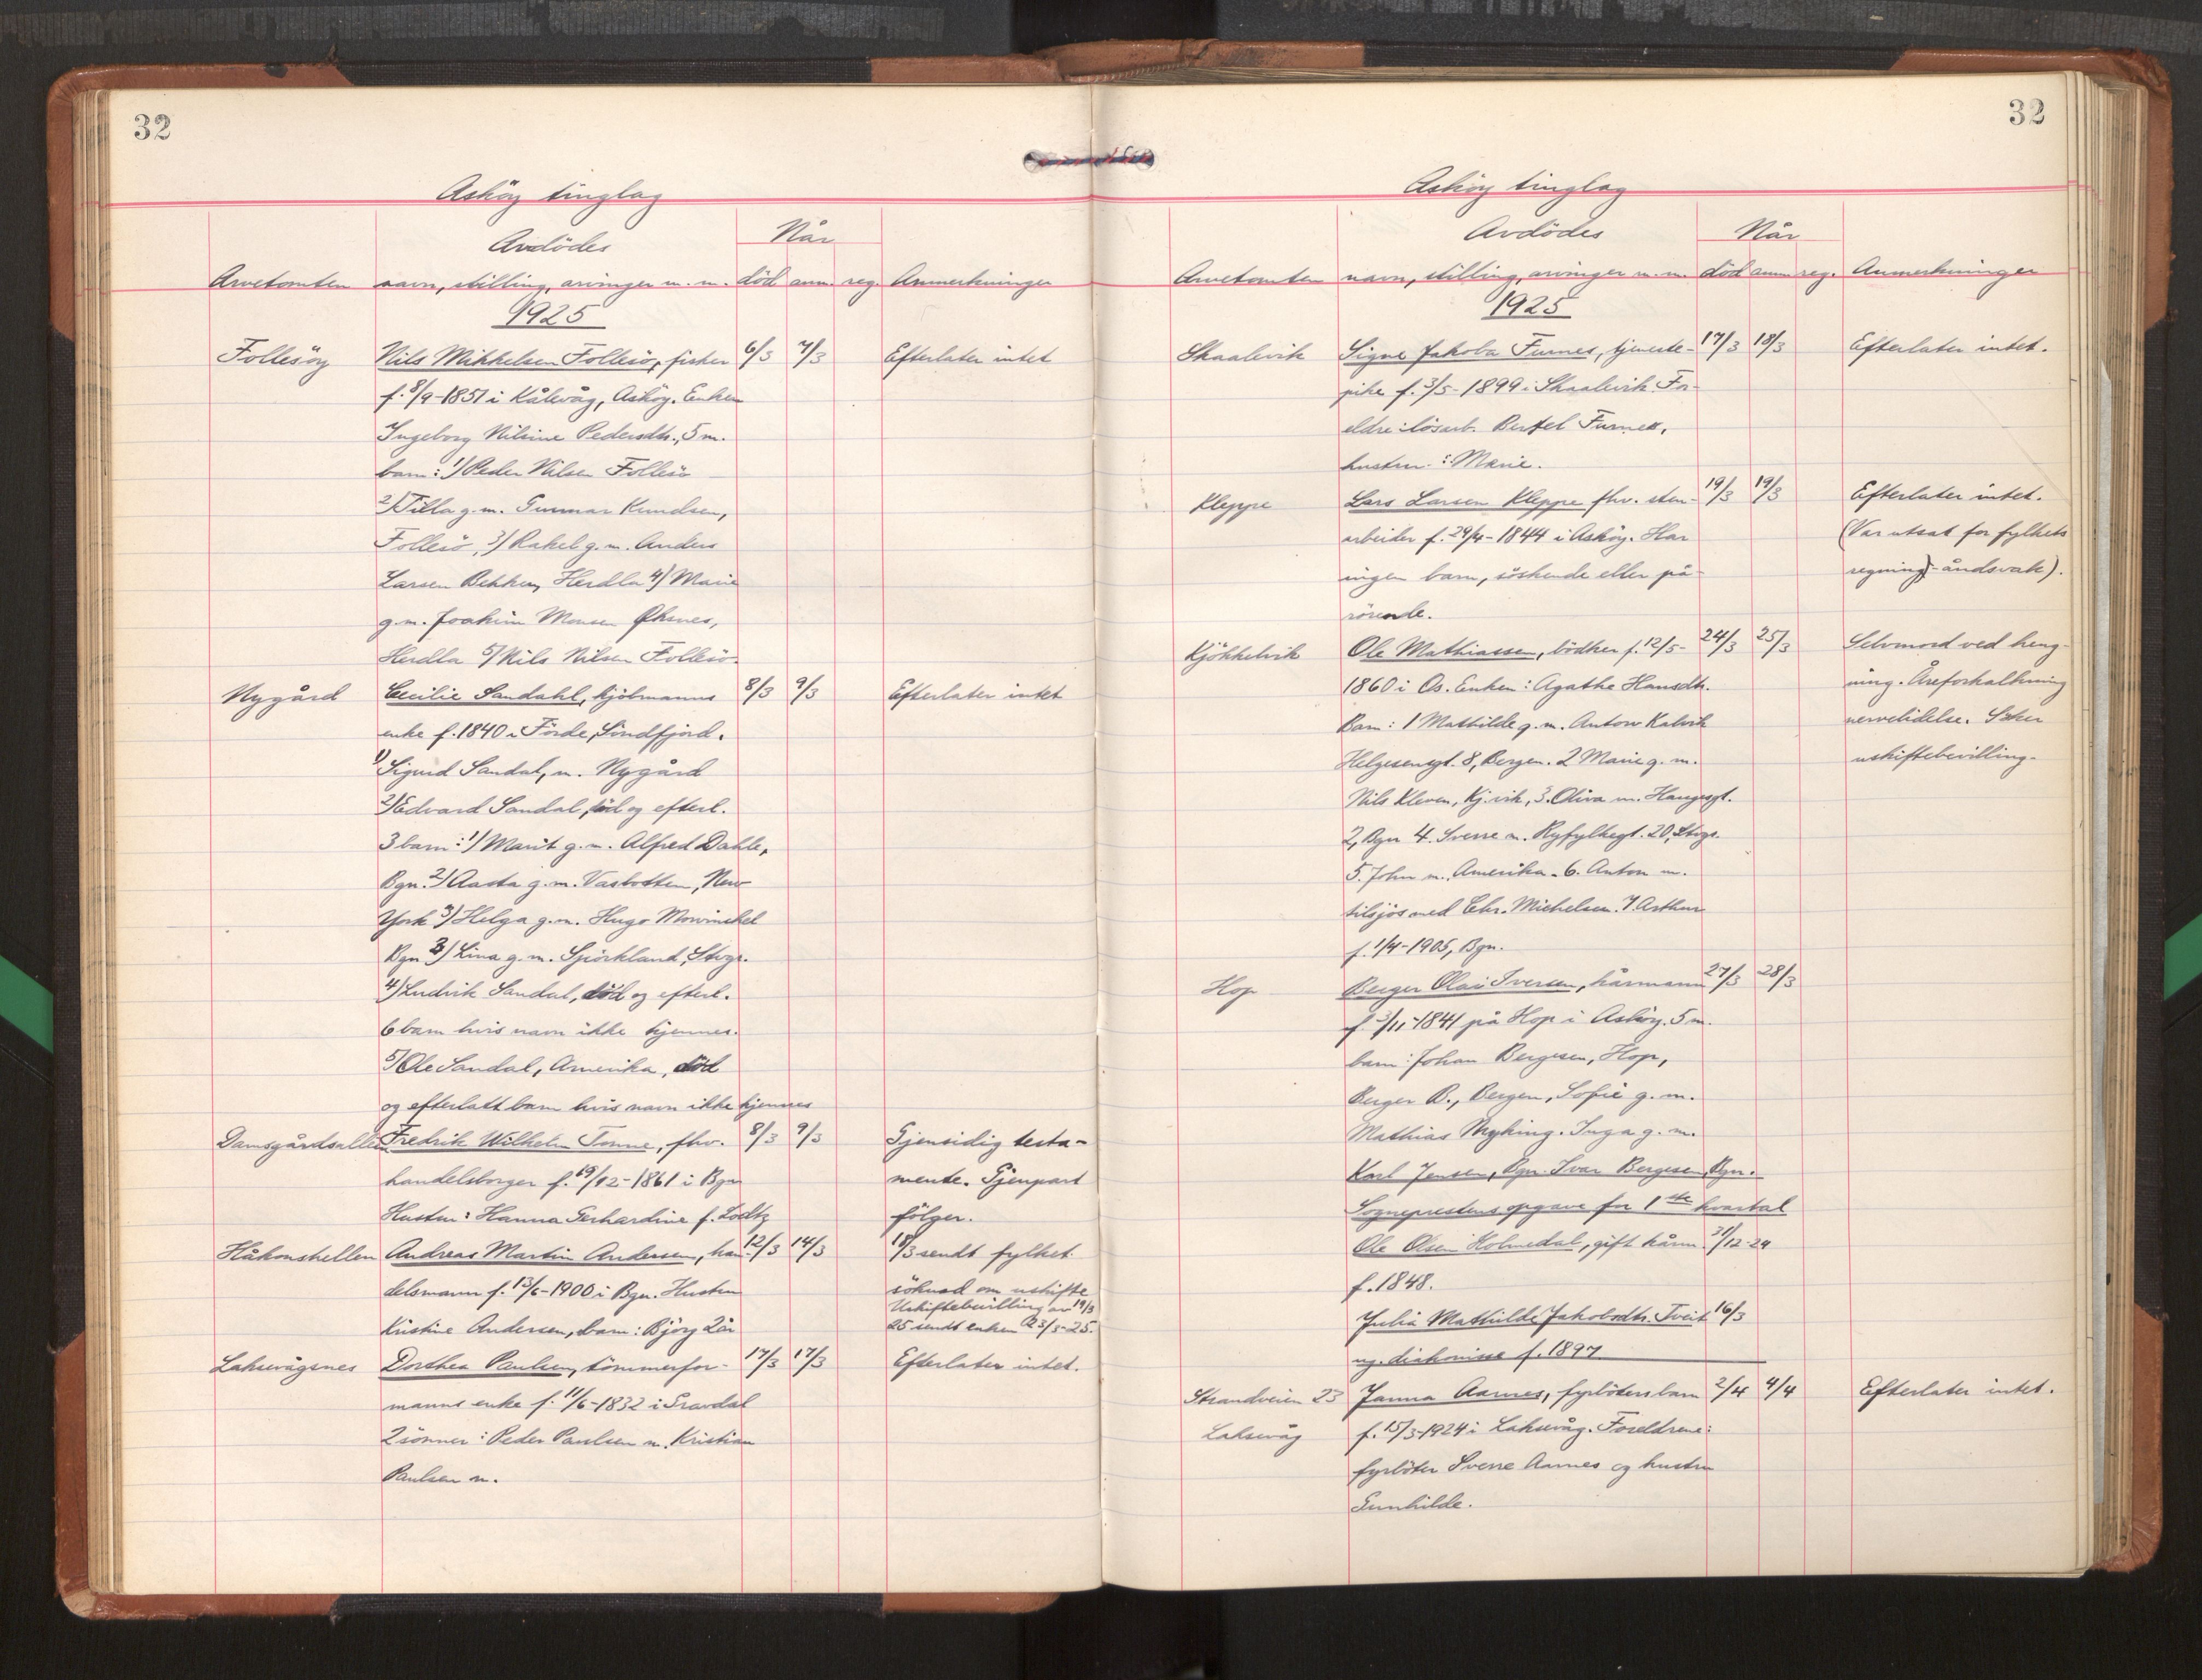 32
Asköy tinglag
Avdödes
Når
Arvetomten navn, stilling, arvinger m. m. död anm. reg. Anmerkninger
1925
Follesöy Nils Mikkelsen Follesö, fisker 6/3 7/3 Efterlater intet
f. 8/9-1851 i Kålevåg, Asköy. Enken
Ingeborg Nilsine Pedersdtr., 5 m.
barn: 1) Peder Nilsen Follesö
2) Tilla g.m. Gunnar Knudsen,
Follesö, 3) Rakel g.m. Anders
Larsen Bekken, Herdla 4) Marie
g.m. Joakim Monsen Øksnes,
Herdla 5) Nils Nilsen Follesö
Nygård Cecilie Sandahl, kjölmanns 8/3 9/3 Efterlater intet
enke f. 1840 i Förde, Söndfjord.
1) Sigurd Sandal, m. Nygård
2) Edvard Sandal, död og efterl.
3 barn: 1) Marit g.m. Alfred Dahle,
Bgn. 2) Aasta g.m. Vasbotten, New
York 3) Helga g.m. Hugo Mowinckel
Bgn 3) Lina g.m. Spörkland, Stvgr.
4) Ludvik Sandal, död og efterl.
6 barn hvis navn ikke kjennes.
5) Ole Sandal, Amerika, död
og efterlatt barn hvis navn ikke kjennes
Damsgårdsalleen Fredrik Wilhelm Tonne, fhv. 8/3 9/3 Gjensidig testa-
handelsborger f. 19/12-1861 i Bgn mente. Gjenpart
Hustru: Hanna Gerhardine f. Lodtz fölger.
Håkonshellen Andreas Martin Andersen, han- 12/3 14/3 18/3 sendt fylket
delsmann f. 13/6-1900 i Bgn. Hustru söknad om uskifte
Uskiftebevilling av 19/3
Kristine Andersen, barn: Björg 2 år 25 sendt enken 23/3-25.
Laksevågsnes Dorthea Paulsen, tömmerfor- 17/3 17/3 Efterlater intet.
manns enke f. 11/6-1832 i Gravdal
2 sönner: Peder Paulsen m. Kristian
Paulsen m.
32
Asköy tinglag
Avdödes
Når
Arvetomten navn, stilling, arvinger m.m. död anm. reg. Anmerkninger
1925
Skaalevik Signe Jakoba Furnes, tjeneste- 17/3 18/3 Efterlater intet.
pike f. 3/5-1899 i Skaalevik. For-
eldre: lösarb. Bertel Furnes,
hustru: Marie.
Kleppe Lars Larsen Kleppe fhv. sten- 19/3 19/3 Efterlater intet.
arbeider f. 29/4-1844 i Asköy. Har (Var utsat for fylkets
ingen barn, söskende eller på- regning - åndsvak).
rörende.
Kjökkelvik Ole Mathiassen, bödker f. 12/5- 24/3 25/3 Selvmord ved heng-
1860 i Os. Enken: Agathe Hansdtr. ning. Åreforkalkning
Barn: 1 Mathilde g.m. Anton Kalvik nervelidelse. Söker
Helgesensgt. 8, Bergen. 2 Marie g.m. uskiftebevilling.
Nils Kleven, Kj.vik, 3. Oliva m. Haugesgt.
2, Bgn 4. Sverre m. Ryfylkegt. 20, Stvgr.
5. John m. Amerika. 6. Anton m.
tilsjös med Chr. Michelsen. 7. Arthur
f. 1/4-1905, Bgn.
Hop Berger Olai Iversen, kårmann 27/3 28/3
f. 3/11-1841 på Hop i Asköy. 5 m.
barn: Johan Bergesen, Hop,
Berger B., Bergen, Sofie g.m.
Mathias Myking. Inga g.m.
Karl Jensen, Bgn. Ivar Bergesen, Bgn.
Sogneprestens opgave for 1ste kvartal
Ole Olsen Holmedal, gift kårm. 31/12-24
f. 1848.
Julia Mathilde Jakobsdtr. Tveit 16/3
ug. diakonisse f. 1897
Strandveien 23 Janna Aarnes, fyrböters barn 2/4 4/4 Efterlater intet.
Laksevåg f. 15/3-1924 i Laksevåg. Foreldrene:
fyrböter Sverre Aarnes og hustru
Gunhilde.